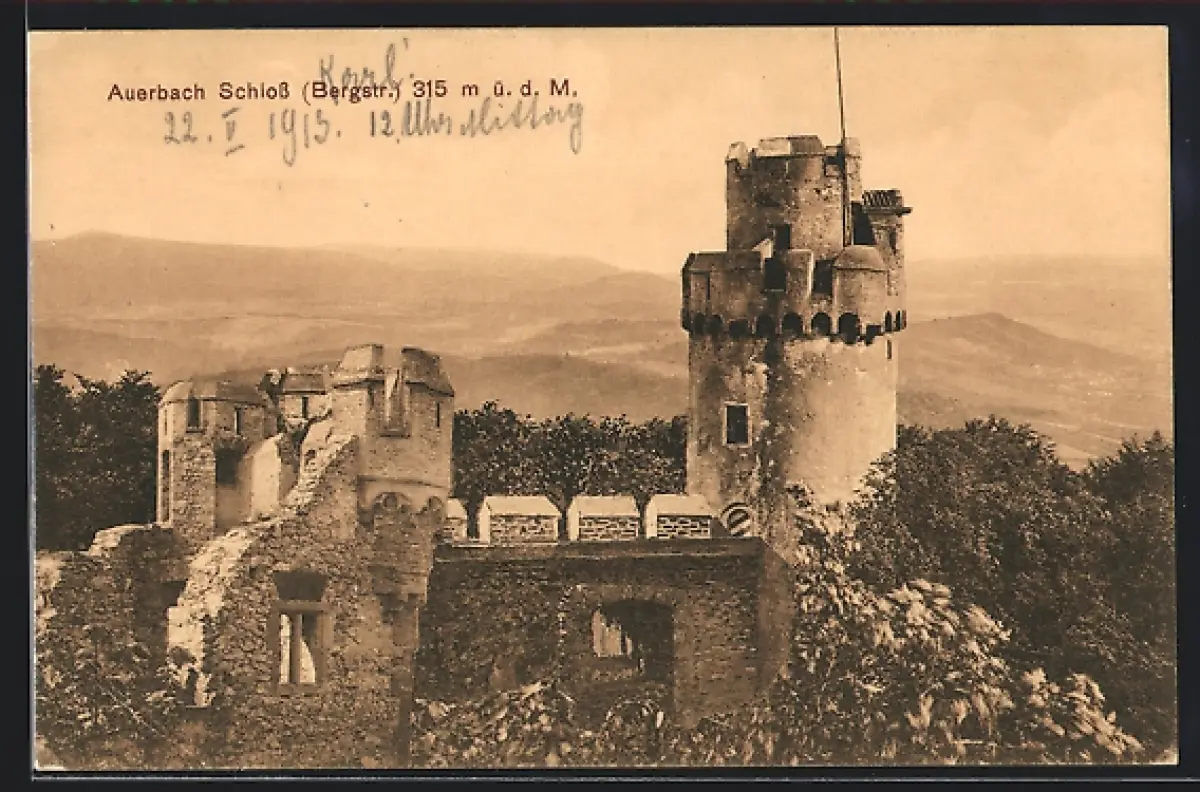 Karl
Auerbach Schloß (Bergstr.) 315 m ü. d. M.
22. V 1915. 12 Uhr Mittag